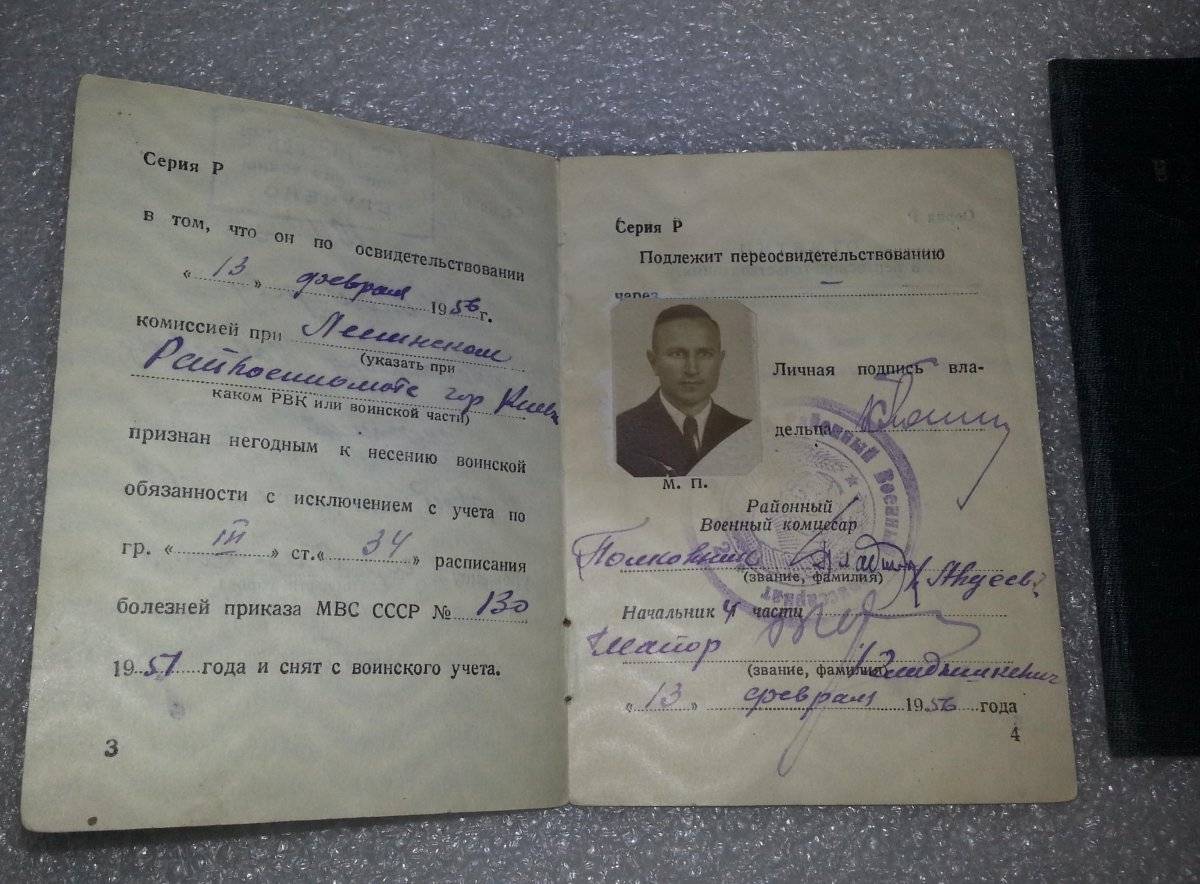 Серия Р
в том, что он по освидетельствовании
« 13 » февраля 1956 г.
комиссией при Ленинском
(указать при
Райвоенкомате гор Киева
каком РВК или воинской части)
признан негодным к несению воинской
обязанности с исключением с учета по
гр. « III » ст. « 34 » расписания
болезней приказа МВС СССР № 130
1951 года и снят с воинского учета.
3
Серия Р
Подлежит переосвидетельствованию
через –
Личная подпись вла-
дельца
М. П.
Районный
Военный комисар
Полковник
(звание, фамилия)
Начальник 4 части
Майор
(звание, фамилия)
« 13 » февраля 1956 года
4